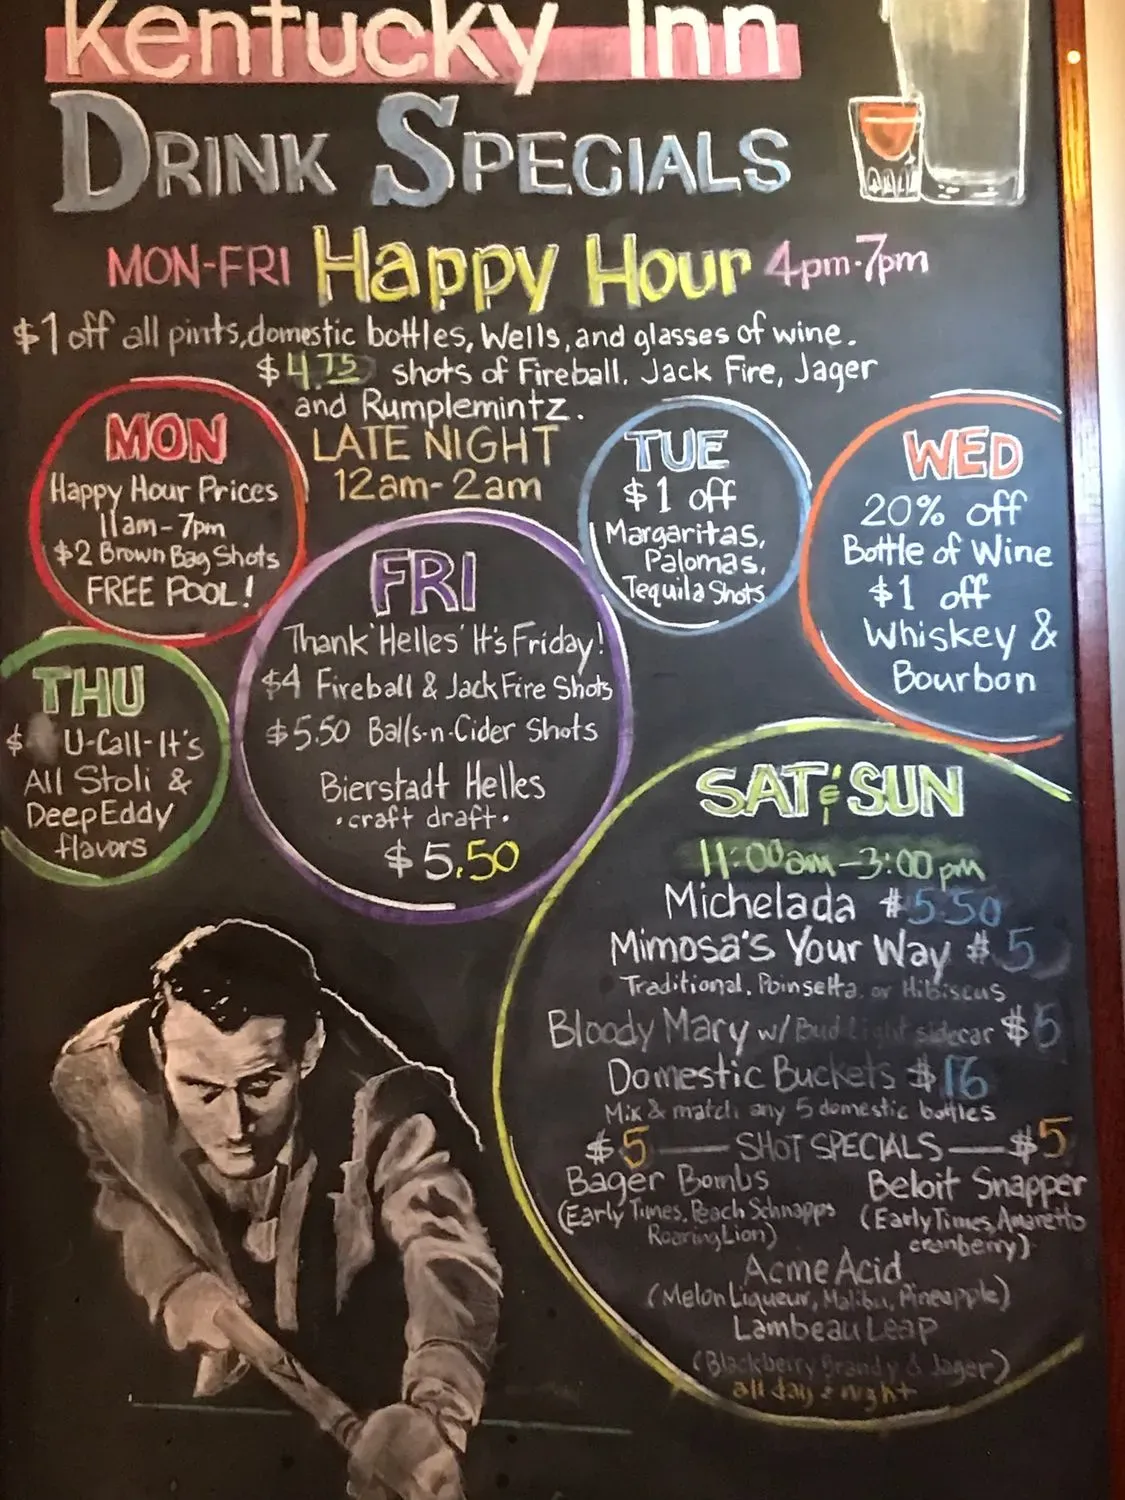 Kentucky Inn
DRINK SPECIALS
MON-FRI Happy Hour 4pm-7pm
$1 off all pints, domestic bottles, Wells, and glasses of wine.
$4.75 shots of Fireball, Jack Fire, Jager
and Rumplemintz.
LATE NIGHT
12am-2am
MON
Happy Hour Prices
11am-7pm
$2 Brown Bag Shots
FREE POOL!
TUE
$1 off
Margaritas,
Palomas,
Tequila Shots
WED
20% off
Bottle of Wine
$1 off
Whiskey &
Bourbon
THU
$ U-Call-It's
All Stoli &
Deep Eddy
flavors
FRI
Thank 'Helles' It's Friday!
$4 Fireball & Jack Fire Shots
$5.50 Balls-n-Cider Shots
Bierstadt Helles
•craft draft•
$5.50
SAT & SUN
11:00am-3:00pm
Michelada $5.50
Mimosa's Your Way $5
Traditional, Poinsetta, or Hibiscus
Bloody Mary w/ Bud Light sidecar $5
Domestic Buckets $16
Mix & match any 5 domestic bottles
$5 — SHOT SPECIALS — $5
Bager Bombs
(Early Times, Peach Schnapps
Roaring Lion)
Beloit Snapper
(Early Times, Amaretto
cranberry)
Acme Acid
(Melon Liqueur, Malibu, Pineapple)
Lambeau Leap
(Blackberry Brandy & Jager)
all day & night